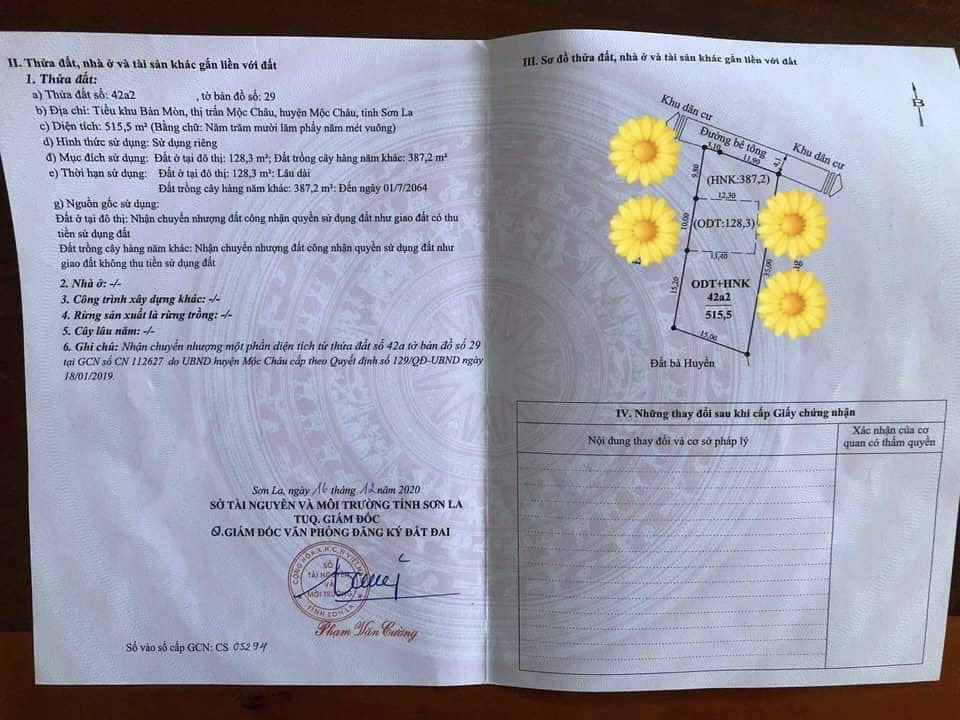 II. Thửa đất, nhà ở và tài sản khác gắn liền với đất
1. Thửa đất:
a) Thửa đất số: 42a2 , tờ bản đồ số: 29
b) Địa chỉ: Tiểu khu Bản Mòn, thị trấn Mộc Châu, huyện Mộc Châu, tỉnh Sơn La
c) Diện tích: 515,5 m² (Bằng chữ: Năm trăm mười lăm phẩy năm mét vuông)
d) Hình thức sử dụng: Sử dụng riêng
đ) Mục đích sử dụng: Đất ở tại đô thị: 128,3 m²; Đất trồng cây hàng năm khác: 387,2 m²
e) Thời hạn sử dụng: Đất ở tại đô thị: 128,3 m²: Lâu dài
Đất trồng cây hàng năm khác: 387,2 m²: Đến ngày 01/7/2064
g) Nguồn gốc sử dụng:
Đất ở tại đô thị: Nhận chuyển nhượng đất công nhận quyền sử dụng đất như giao đất có thu
tiền sử dụng đất
Đất trồng cây hàng năm khác: Nhận chuyển nhượng đất công nhận quyền sử dụng đất như
giao đất không thu tiền sử dụng đất
2. Nhà ở: -/-
3. Công trình xây dựng khác: -/-
4. Rừng sản xuất là rừng trồng: -/-
5. Cây lâu năm: -/-
6. Ghi chú: Nhận chuyển nhượng một phần diện tích từ thửa đất số 42a tờ bản đồ số 29
tại GCN số CN 112627 do UBND huyện Mộc Châu cấp theo Quyết định số 129/QĐ-UBND ngày
18/01/2019.
Sơn La, ngày 16 tháng 12 năm 2020
SỞ TÀI NGUYÊN VÀ MÔI TRƯỜNG TỈNH SƠN LA
TUQ. GIÁM ĐỐC
Q.GIÁM ĐỐC VĂN PHÒNG ĐĂNG KÝ ĐẤT ĐAI
CỘNG HÒA X.H.C.N VIỆT NAM
SỞ
TÀI NGUYÊN
VÀ
MÔI TRƯỜNG
TỈNH SƠN LA
Phạm Văn Cường
Số vào sổ cấp GCN: CS 05294
III. Sơ đồ thửa đất, nhà ở và tài sản khác gắn liền với đất
B
Khu dân cư
Đường bê tông
Khu dân cư
3,10
11,90
4,1
9,80
(HNK:387,2)
12,30
10,00
(ODT:128,3)
13,40
15,20
35,00
ODT+HNK
42a2
515,5
15,00
Đất bà Huyền
IV. Những thay đổi sau khi cấp Giấy chứng nhận
Nội dung thay đổi và cơ sở pháp lý
Xác nhận của cơ
quan có thẩm quyền